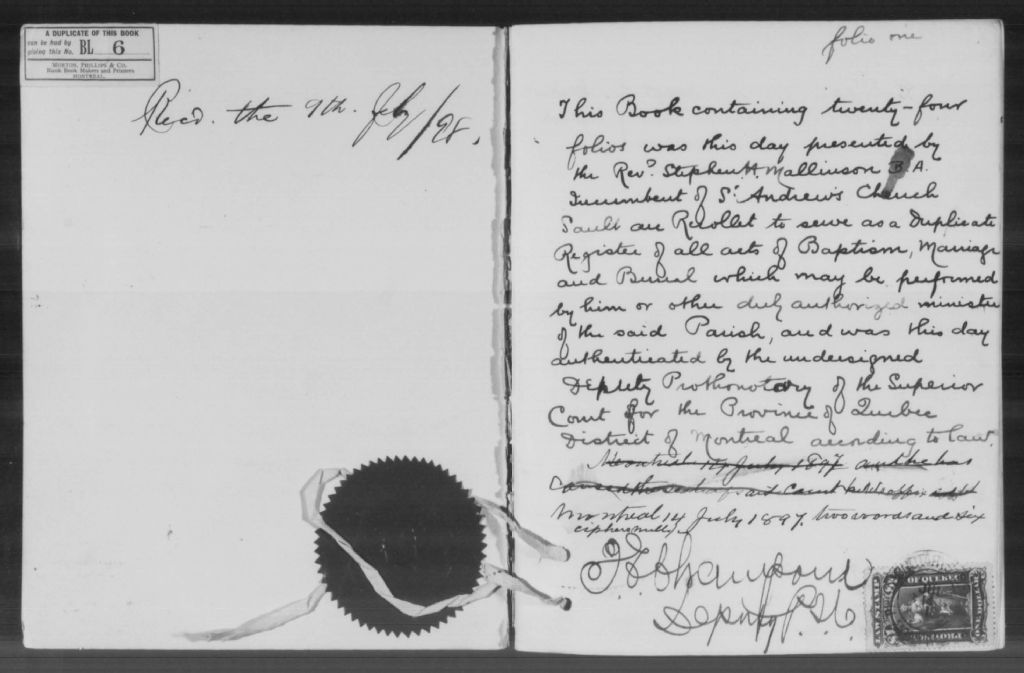 A DUPLICATE OF THIS BOOK
can be had by
giving this No. BL 6
MORTON, PHILLIPS & CO.
Blank Book Makers and Printers
MONTREAL.
Recd. the 9th. Feby/98.
folio one
This Book containing twenty-four
folios was this day presented by
the Revd. Stephen H. Mallinson B.A.
Incumbent of St Andrew's Church
Sault au Recollet to serve as a Duplicate
Register of all acts of Baptism, Marriage
and Burial which may be performed
by him or other duly authorized minister
of the said Parish, and was this day
authenticated by the undersigned
Deputy Prothonotary of the Superior
Court for the Province of Quebec
District of Montreal according to law.
Montreal 14 July 1897 and he has
caused the seal of said Court
Montreal 14 July 1897. two words and six
ciphers null
Deputy P.
OF QUEBEC
LAW STAMP
ONE DOLLAR
PROVINCE